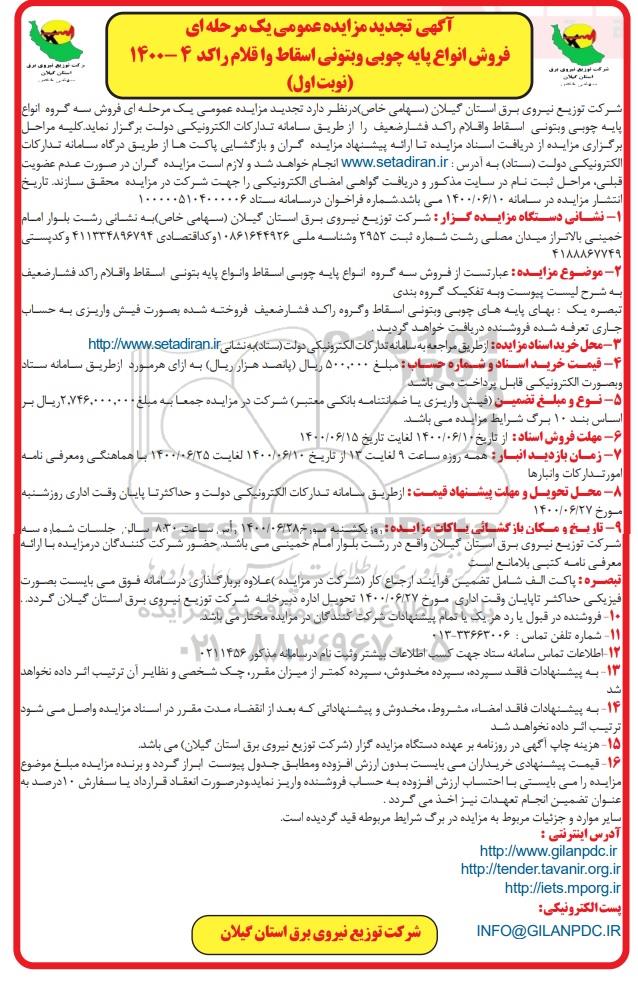 آگهی تجدید مزایده عمومی یک مرحله ای
فروش انواع پایه چوبی وبتونی اسقاط واقلام راکد ۴ -۱۴۰۰
(نوبت اول)
شرکت توزیع نیروی برق
استان گیلان
سهامی خاص
شرکت توزیع نیروی برق
استان گیلان
سهامی خاص
شرکت توزیع نیروی برق استان گیلان (سهامی خاص)درنظر دارد تجدید مزایده عمومی یک مرحله ای فروش سه گروه انواع
پایه چوبی وبتونی اسقاط واقلام راکد فشارضعیف را از طریق سامانه تدارکات الکترونیکی دولت برگزار نماید.کلیه مراحل
برگزاری مزایده از دریافت اسناد مزایده تا ارائه پیشنهاد مزایده گران و بازگشایی پاکت ها از طریق درگاه سامانه تدارکات
الکترونیکی دولت (ستاد) به آدرس : www.setadiran.ir انجام خواهد شد و لازم است مزایده گران در صورت عدم عضویت
قبلی، مراحل ثبت نام در سایت مذکور و دریافت گواهی امضای الکترونیکی را جهت شرکت در مزایده محقق سازند. تاریخ
انتشار مزایده در سامانه ۱۴۰۰/۰۶/۱۰ می باشد.شماره فراخوان درسامانه ستاد ۱۰۰۰۰۰۵۱۰۴۰۰۰۰۰۶
۱- نشانی دستگاه مزایده گزار : شرکت توزیع نیروی برق استان گیلان (سهامی خاص)به نشانی رشت بلوار امام
خمینی بالاتراز میدان مصلی رشت شماره ثبت ۲۹۵۲ وشناسه ملی ۱۰۸۶۱۶۴۴۹۲۶ وکداقتصادی ۴۱۱۳۳۴۸۹۶۷۹۴ وکدپستی
۴۱۸۸۸۶۷۷۴۹
۲- موضوع مزایده : عبارتست از فروش سه گروه انواع پایه چوبی اسقاط وانواع پایه بتونی اسقاط واقلام راکد فشارضعیف
به شرح لیست پیوست وبه تفکیک گروه بندی
تبصره یک : بهای پایه های چوبی وبتونی اسقاط وگروه راکد فشارضعیف فروخته شده بصورت فیش واریزی به حساب
جاری تعرفه شده فروشنده دریافت خواهد گردید .
۳- محل خرید اسناد مزایده : ازطریق مراجعه به سامانه تدارکات الکترونیکی دولت (ستاد)به نشانی http://www.setadiran.ir
۴- قیمت خرید اسناد و شماره حساب : مبلغ ۵۰۰,۰۰۰ ریال (پانصد هزار ریال) به ازای هرمورد ازطریق سامانه ستاد
وبصورت الکترونیکی قابل پرداخت می باشد
۵- نوع و مبلغ تضمین (فیش واریزی یا ضمانتنامه بانکی معتبر) شرکت در مزایده جمعا به مبلغ۲,۷۴۶,۰۰۰,۰۰۰ریال بر
اساس بند ۱۰ برگ شرایط مزایده می باشد.
۶- مهلت فروش اسناد : از تاریخ۱۴۰۰/۰۶/۱۰ لغایت تاریخ ۱۴۰۰/۰۶/۱۵
۷- زمان بازدید انبار : همه روزه ساعت ۹ لغایت ۱۳ از تاریخ ۱۴۰۰/۰۶/۱۰ لغایت ۱۴۰۰/۰۶/۲۵ با هماهنگی ومعرفی نامه
امورتدارکات وانبارها
۸- محل تحویل و مهلت پیشنهاد قیمت : ازطریق سامانه تدارکات الکترونیکی دولت و حداکثرتا پایان وقت اداری روزشنبه
مورخ ۱۴۰۰/۰۶/۲۷
۹- تاریخ و مکان بازگشائی پاکات مزایده : روزیکشنبه مورخ۱۴۰۰/۰۶/۲۸ رأس ساعت ۸:۳۰ سالن جلسات شماره سه
شرکت توزیع نیروی برق استان گیلان واقع در رشت بلوار امام خمینی می باشد. حضور شرکت کنندگان درمزایده با ارائه
معرفی نامه کتبی بلامانع است
تبصره : پاکت الف شامل تضمین فرآیند ارجاع کار (شرکت در مزایده )علاوه بربارگذاری درسامانه فوق می بایست بصورت
فیزیکی حداکثر تاپایان وقت اداری مورخ ۱۴۰۰/۰۶/۲۷ تحویل اداره دبیرخانه شرکت توزیع نیروی برق استان گیلان گردد. .
۱۰- فروشنده در قبول یا رد هر یک یا تمام پیشنهادات شرکت کنندگان در مزایده مختار می باشد.
۱۱- شماره تلفن تماس : ۳۳۶۶۳۰۰۶-۰۱۳
۱۲-اطلاعات تماس سامانه ستاد جهت کسب اطلاعات بیشتر وثبت نام درسامانه مذکور ۰۲۱۱۴۵۶
۱۳- به پیشنهادات فاقد سپرده، سپرده مخدوش، سپرده کمتر از میزان مقرر، چک شخصی و نظایر آن ترتیب اثر داده نخواهد
شد
۱۴- به پیشنهادات فاقد امضاء، مشروط، مخدوش و پیشنهاداتی که بعد از انقضاء مدت مقرر در اسناد مزایده واصل می شود
ترتیب اثر داده نخواهد شد
۱۵- هزینه چاپ آگهی در روزنامه بر عهده دستگاه مزایده گزار (شرکت توزیع نیروی برق استان گیلان) می باشد.
۱۶- قیمت پیشنهادی خریداران می بایست بدون ارزش افزوده ومطابق جدول پیوست ابراز گردد و برنده مزایده مبلغ موضوع
مزایده را می بایستی با احتساب ارزش افزوده به حساب فروشنده واریز نماید.ودرصورت انعقاد قرارداد یا سفارش ۱۰درصد به
عنوان تضمین انجام تعهدات نیز اخذ می گردد .
سایر موارد و جزئیات مربوط به مزایده در برگ شرایط مربوطه قید گردیده است.
آدرس اینترنتی :
http://www.gilanpdc.ir
http://tender.tavanir.org.ir
http://iets.mporg.ir
پست الکترونیکی:
INFO@GILANPDC.IR
شرکت توزیع نیروی برق استان گیلان